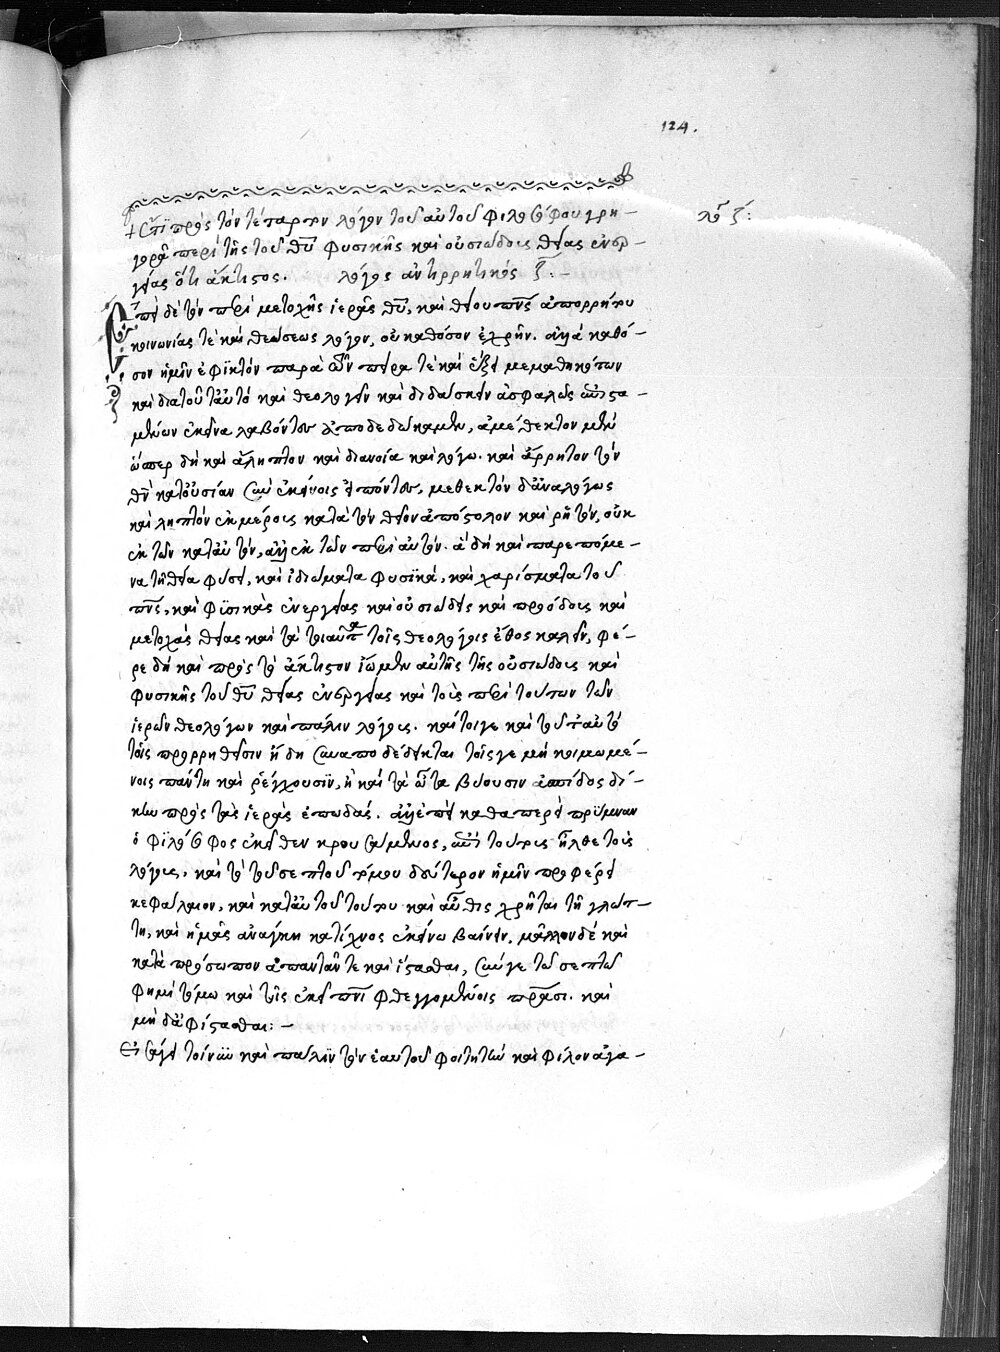 124.
λο^γ ζ´:
+ Ἔτι πρὸς τὸν τέταρτον λόγον τοῦ αὐτοῦ φιλοσόφου γρη-
γορᾶ περὶ τῆς τοῦ θυ φυσικῆς καὶ οὐσιώδους θείας ἐνερ-
γείας ὅτι ἄκτιστος. λόγος ἀντιρρητικὸς ζ:-
Ἐπεὶ δὲ τὸν περὶ μετοχῆς ἱερᾶς θυ, καὶ θείου πνς ἀπορρήτου
κοινωνίας τὲ καὶ θεώσεως λόγον, οὐ καθόσον ἐχρῆν. ἀλλὰ καθό-
σον ἡμῖν ἐφικτὸν παρὰ ὧν πεῖρα τὲ καὶ ἕξει μεμαθηκότων
καὶ διατοῦτ' αὐτὸ καὶ θεολογεῖν καὶ διδάσκειν ἀσφαλῶς
μένων ἐκεῖνα λαβόντες ἀποδεδώκαμεν, ἀμέθεκτον μὲν
ὥσπερ δὴ καὶ ἄληπτον καὶ διανοία καὶ λόγω. καὶ ἄρρητον τὸν
θν κατ' οὐσίαν σὺν ἐκείνοις εἰπόντες, μεθεκτὸν δ' ἀναλόγως
καὶ ληπτὸν ἐκ μέρους κατὰ τὸν θεῖον ἀπόστολον καὶ ῥητὸν, οὐκ
ἐκ τῶν κατ' αὐτὸν, ἀλλ' ἐκ τῶν περὶ αὐτὸν. ἃ δὴ καὶ παρεπόμε-
να τῆ θεία φύσει, καὶ ἰδιώματα φυσϊκὰ, καὶ χαρίσματα τοῦ
πνς, καὶ φϋσικὰς ἐνεργείας καὶ οὐσιώδεις καὶ προόδους καὶ
μετοχὰς θείας καὶ τὰ τοιαῦτα τοῖς θεολόγοις ἔθος καλεῖν, φέ-
ρε δὴ καὶ πρὸς τὸ ἄκτιστον ἴωμεν αὐτῆς τῆς οὐσιώδους καὶ
φυσικῆς τοῦ θυ θείας ἐνεργείας καὶ τοὺς περὶ τούτων τῶν
ἱερῶν θεολόγων καὶ πάλιν λόγους. καίτοιγε καὶ τοῦτ' αὐτὸ
τοῖς προρρηθεῖσιν ἤδη συναποδέδεικται τοῖς γε μὴ κοιμωμέ-
νοις πάντη καὶ ῥέγχουσϊν, ἢ καὶ τὰ ὦτα βύουσιν ἀσπίδος δί-
κην πρὸς τὰς ἱερὰς ἐπωδάς. ἀλλ' ἐπεὶ καθαπερεὶ πρύμναν
ὁ φϊλόσοφος ἐκεῖθεν κρουσάμενος, τούτοις ἦλθε τοὺς
λόγους, καὶ τὸ τοῦ σεπτοῦ τόμου δεύτερον ἡμῖν προφέρει
κεφάλαιον, καὶ κατ' αὐτοῦ τούτου καὶ αὖθις χρῆται τῆ γλώτ-
τη, καὶ ἡμᾶς ἀνάγκη κατίχνος ἐκείνω βαίνειν, μᾶλλον δὲ καὶ
κατὰ πρόσωπον ἀπαντᾶν τε καὶ ἵστασθαι, σύν γε τῶ σεπτῶ
φημὶ τόμω καὶ τοῖς ἐκεῖ πνι φθεγγομένοις πράσι. καὶ
μὴ δ' ἀφίστασθαι:-
Εἰσάγει τοίνϋν καὶ πάλϊν τὸν ἑαυτοῦ φοιτητὴν καὶ φίλον ἀγα-